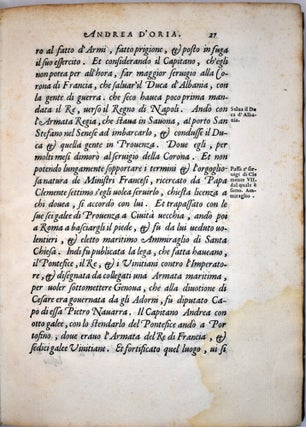 ANDREA D'ORIA. 27
ro al fatto d'Armi, fatto prigione, & posto in fuga
il suo essercito. Et considerando il Capitano, ch'egli
non potea per all'hora, far maggior seruigio alla Co
rona di Francia, che saluar'il Duca d'Albania, con
la gente di guerra, che seco hauea poco prima man
data il Re, verso il Regno di Napoli. Andò con
l'Armata Regia, che staua in Sauona, al porto San
Stefano nel Senese ad imbarcarlo, & condusse il Du
ca & quella gente in Prouenza. Doue egli, per
molti mesi dimorò al seruigio della Corona. Et non
potendo lungamente sopportare i termini & l'orgoglio
sa natura de Ministri Francesi, ricercato da Papa
Clemente settimo s'egli uolea seruirlo, chiesta licenza a
chi douea, si accordò con lui. Et trapassato con le
sue sei galee di Prouenza a Ciuità vecchia, andò poi
a Roma a basciargli il piede, & fu da lui veduto uo
lentieri, & eletto maritimo Ammiraglio di Santa
Chiesa. Indi fu publicata la lega, che fatta haueano,
il Pontefice, il Re, & i Vinitiani contro l'Imperato
re, & disegnata da collegati una Armata maritima,
per voler sottomettere Genoua, che alla diuotione di
Cesare era gouernata da gli Adorni, fu diputato Ca
po di essa Pietro Nauarra. Il Capitano Andrea con
otto galee, con lo stendardo del Pontefice andò a Por
tofino, doue trauò l'Armata del Re di Francia, &
sedici galee Vinitiane. Et fortificato quel luogo, ui si
Salua il Du
ca d'Alba
nia.
Passa a' ser
uigi di Cle
mente VII.
dal quale è
fatto Am-
miraglio.